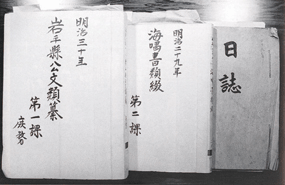 日誌
明治二十九年
海嘯書類綴
第二課
明治三十
岩手縣公文類纂
第一課
庶務